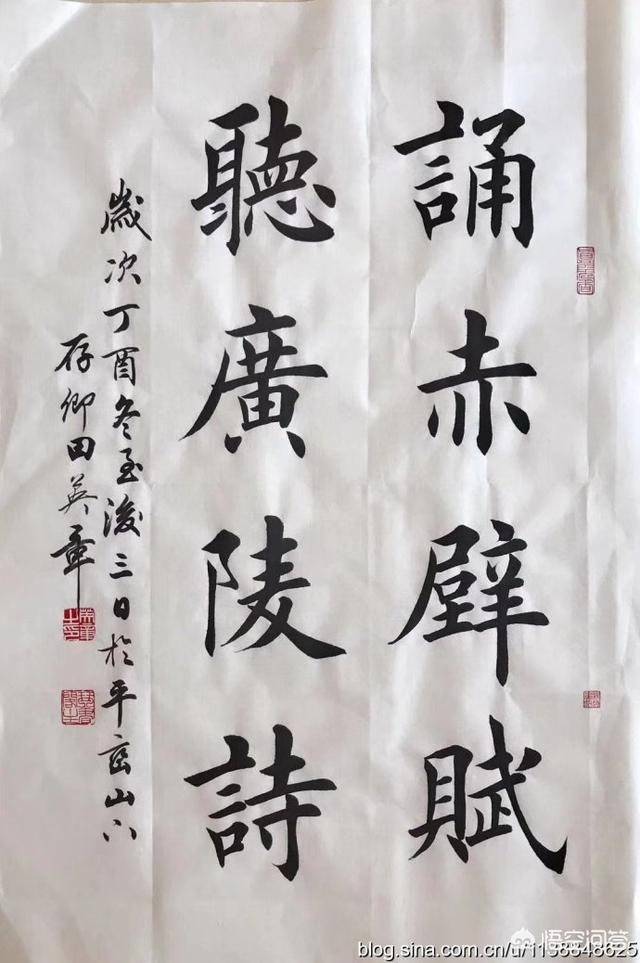 誦赤壁賦
聽廣陵詩
歲次丁酉冬至後三日於平峦山下
存卿田英章
悟空问答
blog.sina.com.cn/u/1138648625